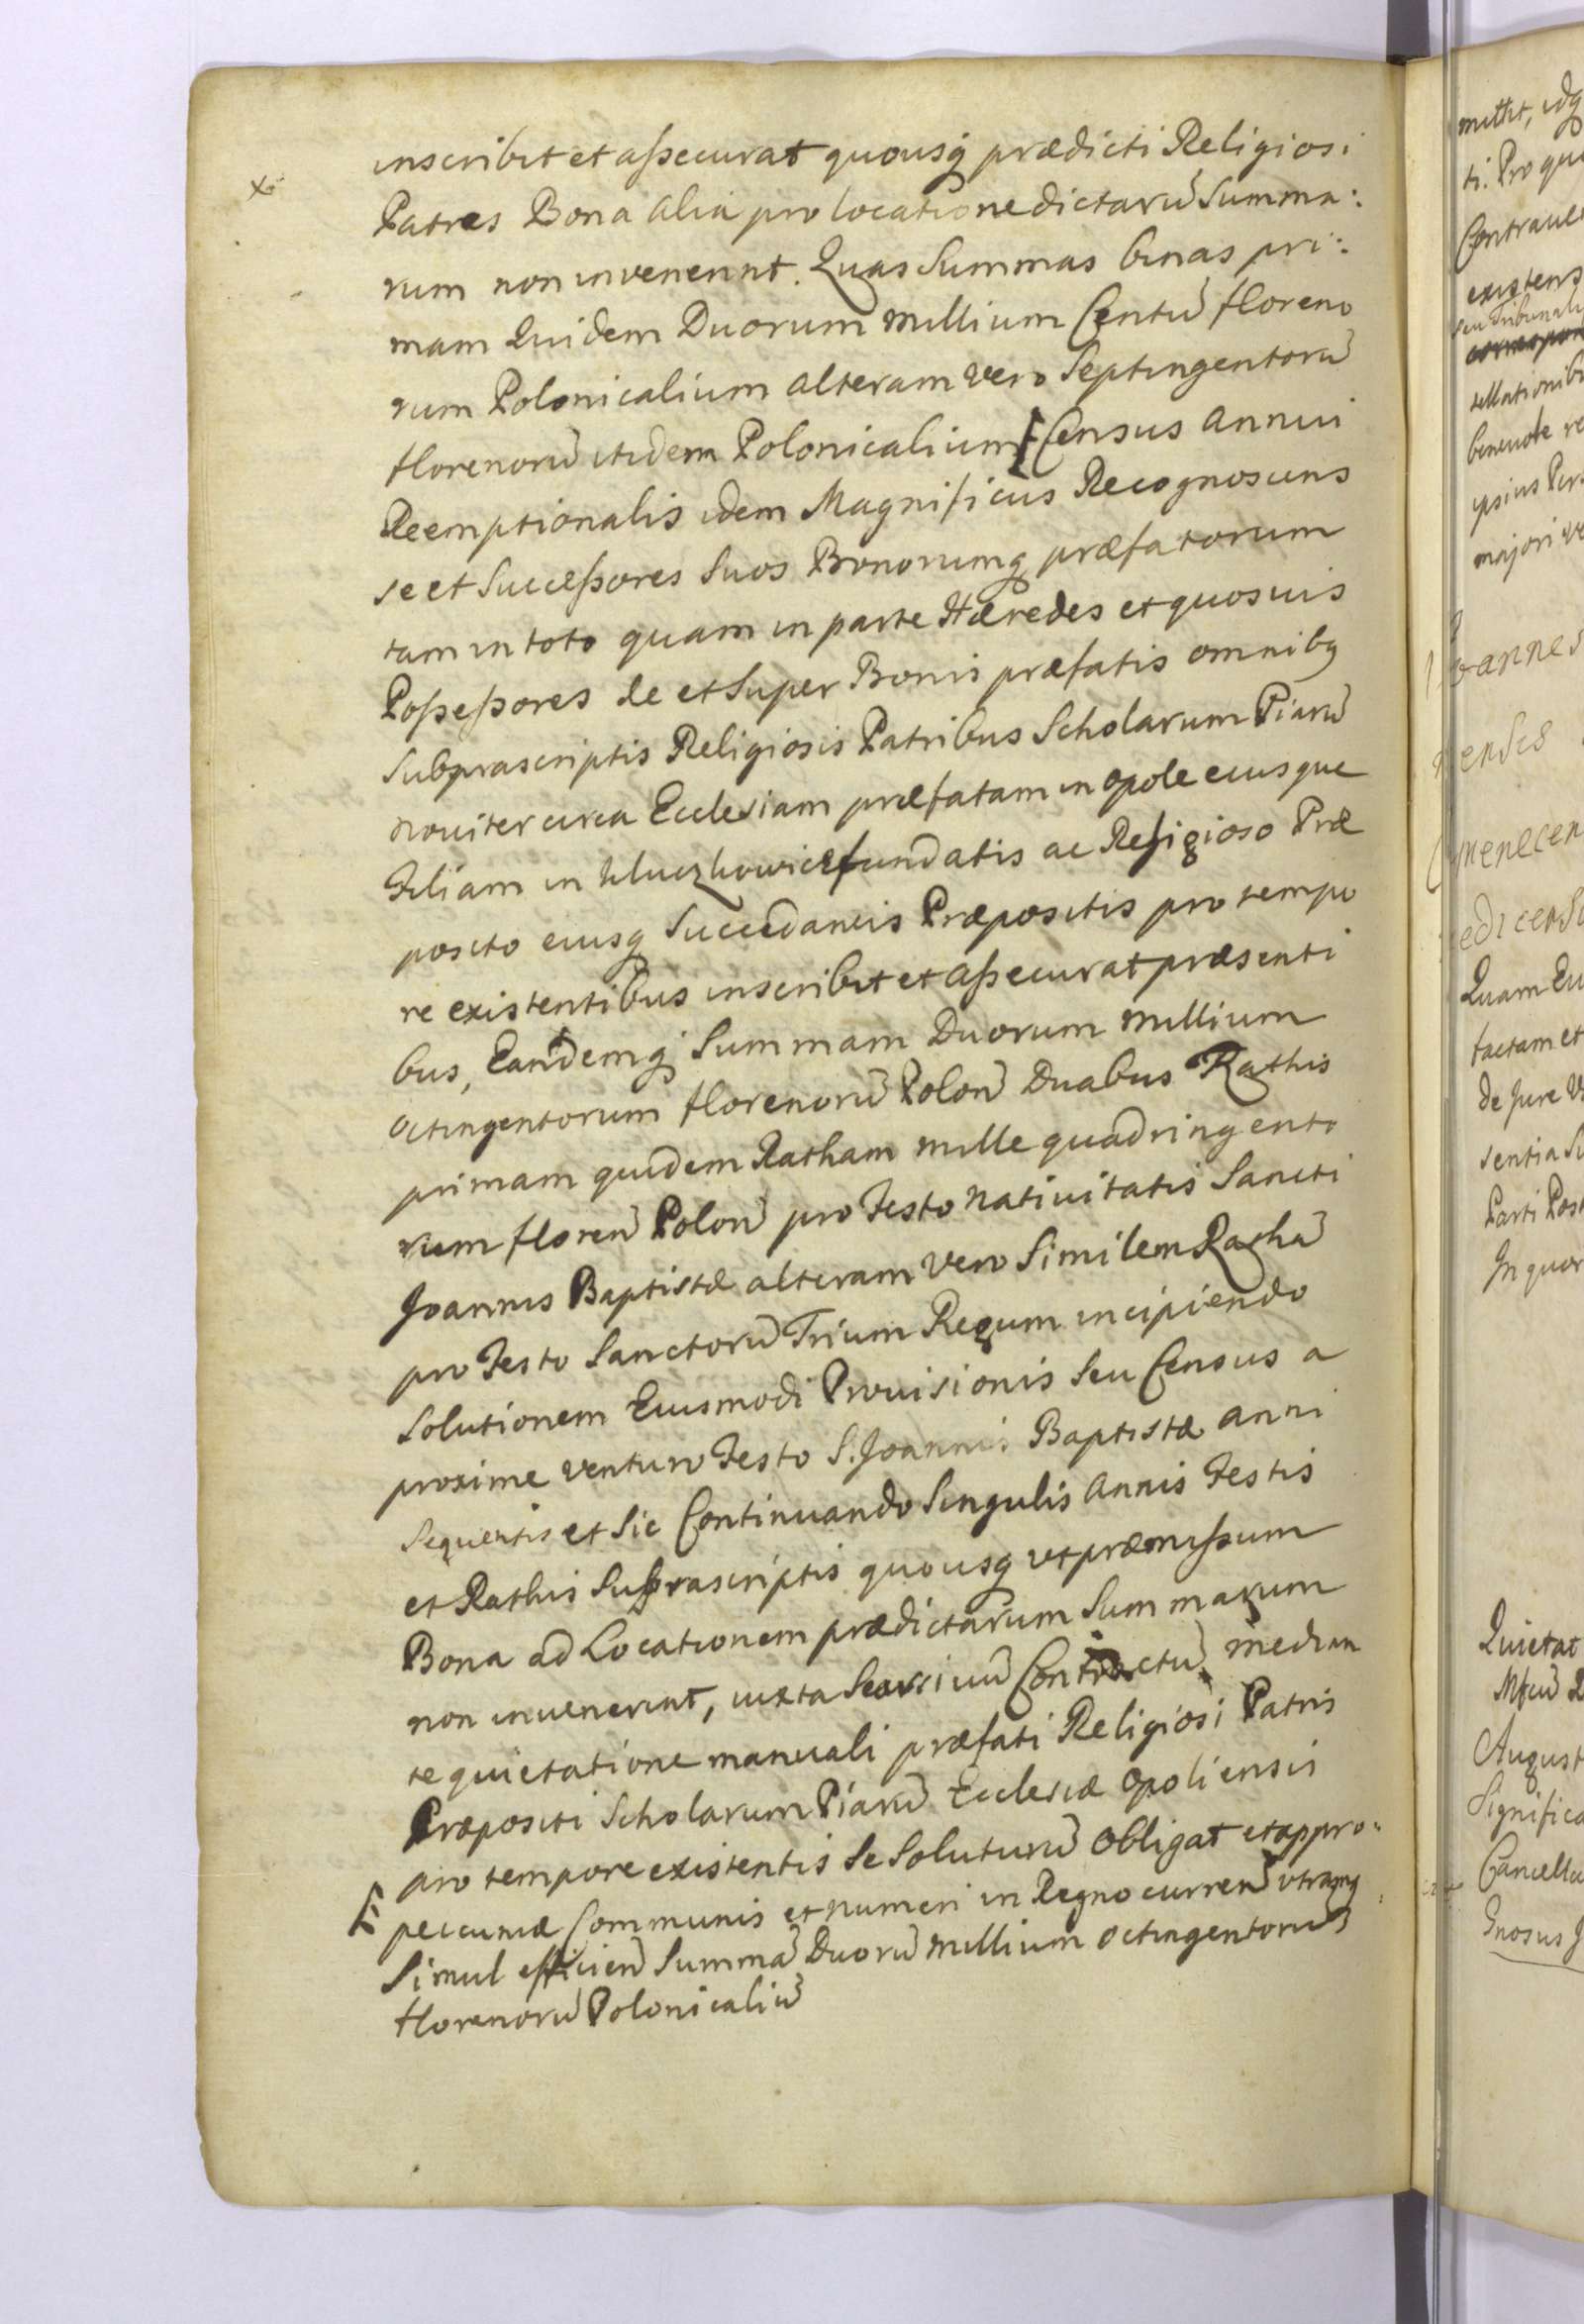 inscribit et aſsecurat quousq prædicti Religiosi
Patres Bona alia pro locatione dictarū Summa:
rum non invenerint. Quas Summas binas pri:
mam Quidem Duorum Millium Centū floreno
rum Polonicalium alteram vero Septingentorū
florenorū itidem Polonicalium Census Annui
Reemptionalis idem Magnificus Recognoscens
se et Succeſsores Suos Bonorumq præfatorum
tam in toto quam in parte Hæredes et quosvis
Poſseſsores de et Super Bonis præfatis omnibq
Subprascriptis Religiosis Patribus Scholarum Piarū
noviter circa Ecclesiam præfatam in Opole eiusque
Filiam in fundatis ac Religioso Præ
posito eiusq Succedaneis Præpositis pro tempo
re existentibus inscribit et aſsecurat præsenti
bus, Eandemq Summam Duorum Millium
Octingentorum florenorū Polon Duabus Rathis
primam quidem Ratham mille quadringento
rum floren Polon pro Festo Nativitatis Sancti
Joannis Baptistæ alteram vero Similem Rathā
pro Festo Sanctorū Trium Regum incipiendo
Solutionem Eiusmodi Provisionis Seu Census a
proxime venturo Festo S. Joannis Baptistæ anni
Sequentis et Sic Continuando Singulis Annis Festis
et Rathis Suprascriptis quousq ut præmiſsum
Bona ad Locationem prædictarum Summarum
non invenerint, iuxta Contractū median
te quietatione manuali præfati Religiosi Patris
Præpositi Scholarum Piarū Ecclesiæ Opoliensis
pro tempore existentis Se Soluturū Obligat et appro:
pecuniæ Communis et numeri in Regno curren utramq
Simul efficien Summā Duorū Millium Octingentorū
florenorū Polonicaliū
mittit, idq
ti. Pro quo
existens
seu Tribunali
ipsius
majori
Quam
factam et
de Jure
sentia
Parti
In quor
Quietat
August
Significa
Cancella